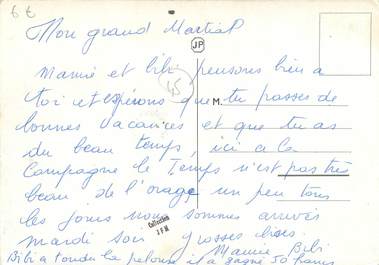 6 €
Mon grand Martial
JP
Mamie et bibi pensons bien a
45
toi et espérons que tu passes de
M.
bonnes vacances et que tu as
du beau temps, ici a la
Campagne le Temps n'est pas très
beau de l'orage un peu tous
les jours nous sommes arrivés
mardi soir grosses bises.
Collection
J F M
Mamie Bibi
Bibi a tondu la pelouse il a gagné 50 francs